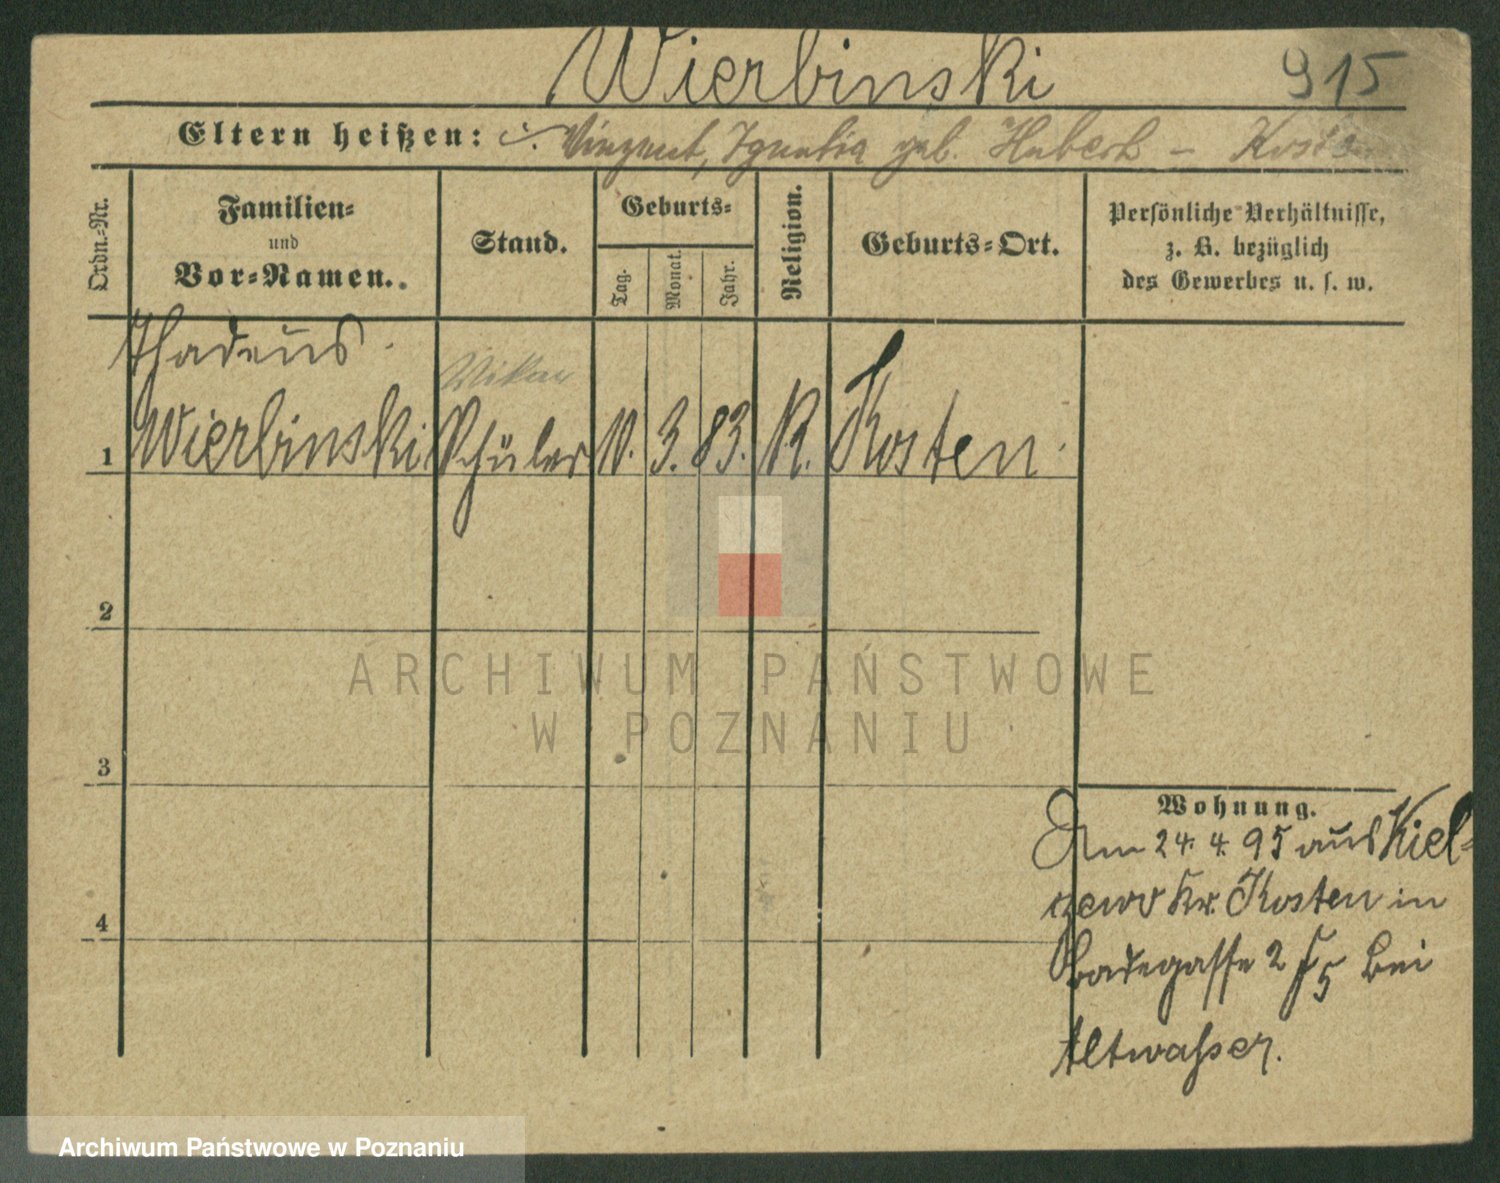 Wierbinski 915
Eltern heißen: Vinzent, Ignatia geb. Hubert – Kosten
Ordn.-Nr.
Familien-
und
Vor-Namen.
Stand.
Geburts-
Tag.
Monat.
Jahr.
Religion.
Geburts-Ort.
Persönliche Verhältnisse,
z. B. bezüglich
des Gewerbes u. s. w.
Thadeus
Vikar
1 Wierbinski Schüler 10. 3. 83. K. Kosten
2
3
4
Wohnung.
Am 24. 4. 95 aus Kiel-
czewo Kr. Kosten in
Badegasse 2 bei
Altwasser.
ARCHIWUM PAŃSTWOWE
W POZNANIU
Archiwum Państwowe w Poznaniu